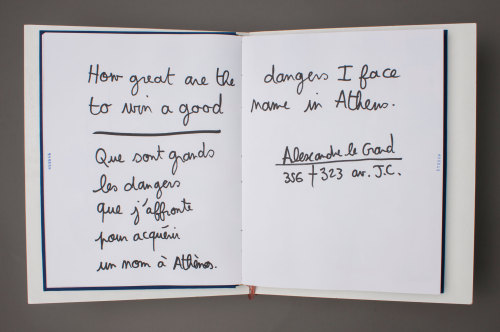 How great are the dangers I face
to win a good name in Athens.
Que sont grands
les dangers
que j'affronte
pour acquérir
un nom à Athènes.
Alexandre le Grand
356 † 323 av. J.C.